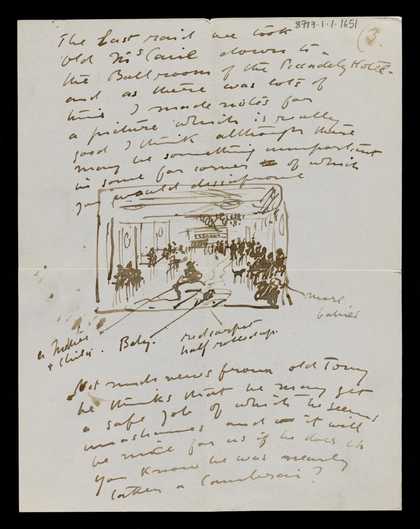 8717.1.1.1651
(3.
The last raid we took
old Mrs Caril down to
the Ballroom of the Piccadily Hotel.
and as there was lots of
time I made notes for
a picture which is really
good I think although there
may be something unimportant
in some far corner of which
you would disapprove
more
babies
a Mother
& child. Baby. red carpet
half rolled up.
Not much news from old Tony
he thinks that he may get
a safe job of which he seems
unashamed and it will
be nice for us if he does it
you know he was nearly
taken a